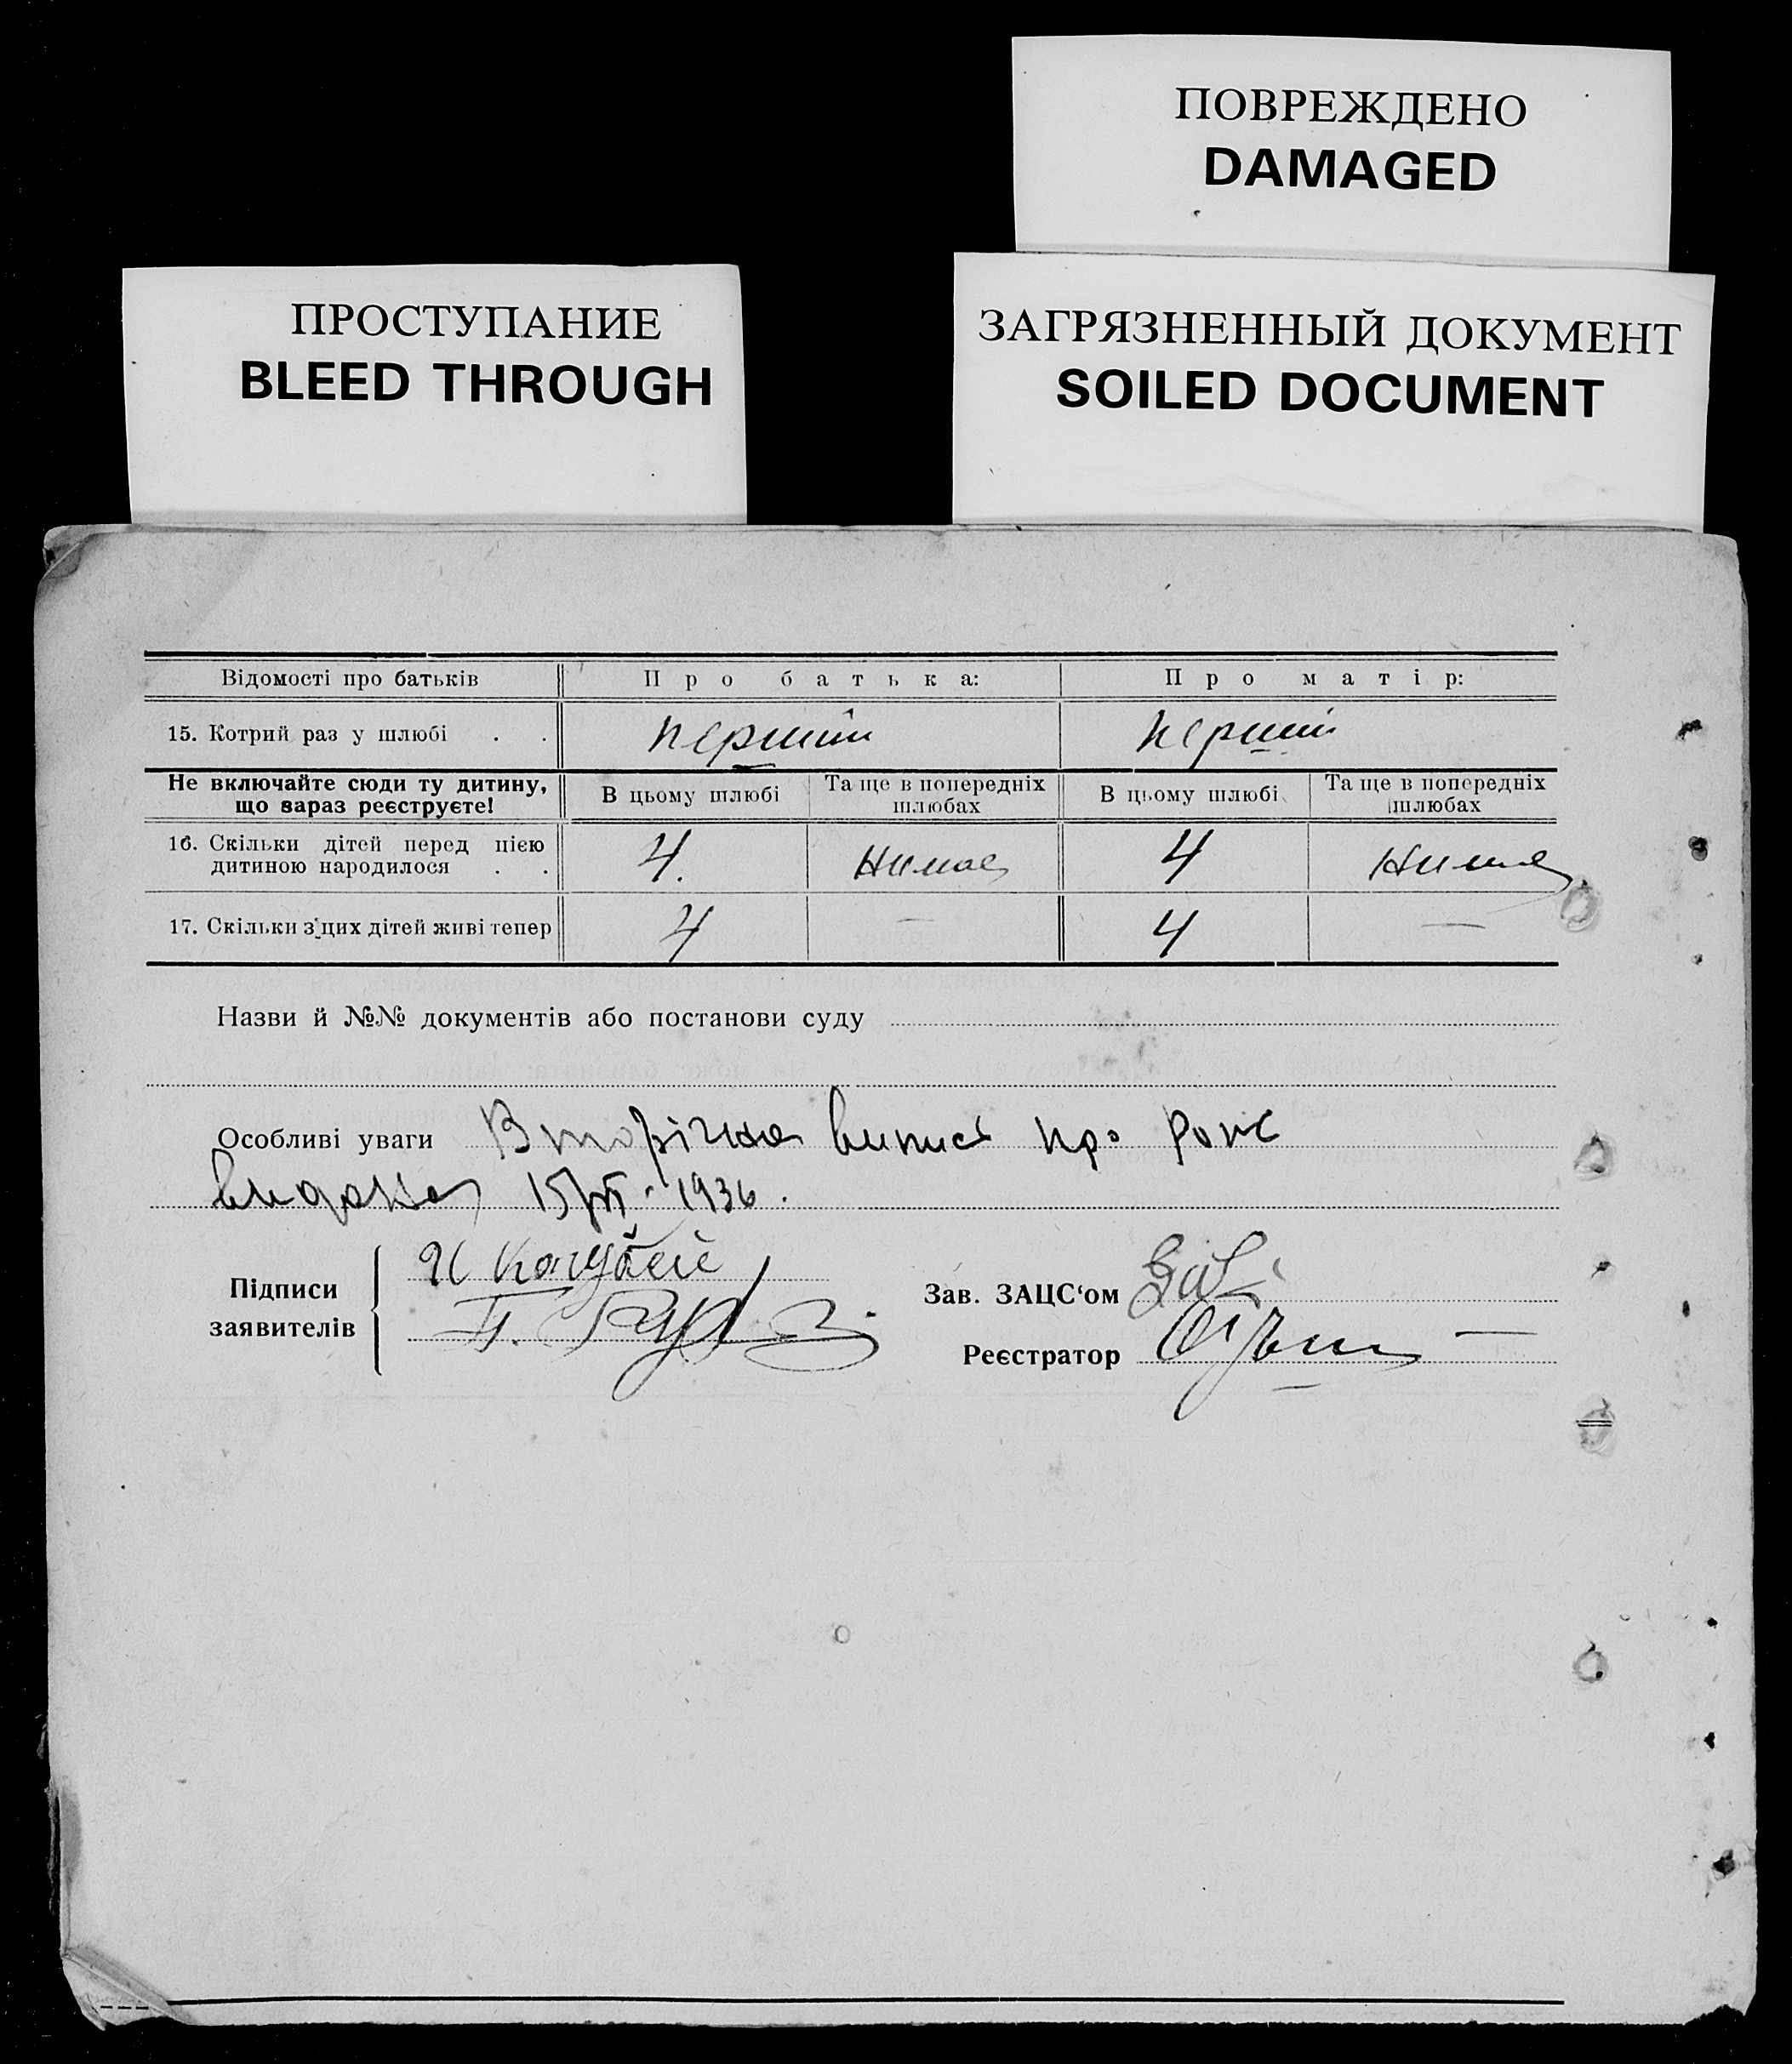 ПОВРЕЖДЕНО
DAMAGED
ПРОСТУПАНИЕ
BLEED THROUGH
ЗАГРЯЗНЕННЫЙ ДОКУМЕНТ
SOILED DOCUMENT
Відомості про батьків Про батька: Про матір:
15. Котрий раз у шлюбі . . перший перший
Не включайте сюди ту дитину, що вараз реєструєте! В цьому шлюбі Та ще в попередніх шлюбах В цьому шлюбі Та ще в попередніх шлюбах
16. Скільки дітей перед цією дитиною народилося . . 4. Нимає 4 Нима
17. Скільки з цих дітей живі тепер 4 — 4 —
Назви й №№ документів або постанови суду
Особливі уваги Вторічна випись про
видана 15/VI 1936.
Підписи заявителів
Зав. ЗАЦС‘ом
Реєстратор